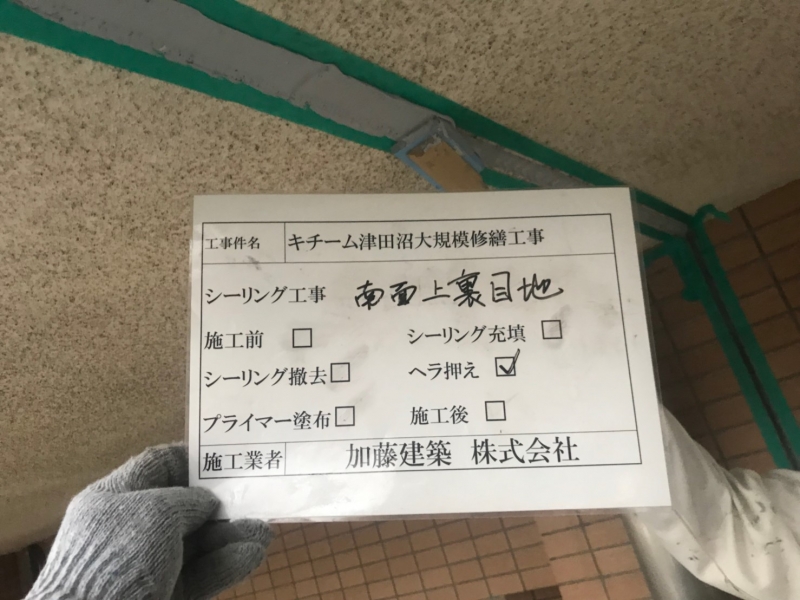 工事件名 キチーム津田沼大規模修繕工事
シーリング工事 南面上裏目地
施工前 □ シーリング充填 □
シーリング撤去 □ ヘラ押え ☑
プライマー塗布 □ 施工後 □
施工業者 加藤建築 株式会社